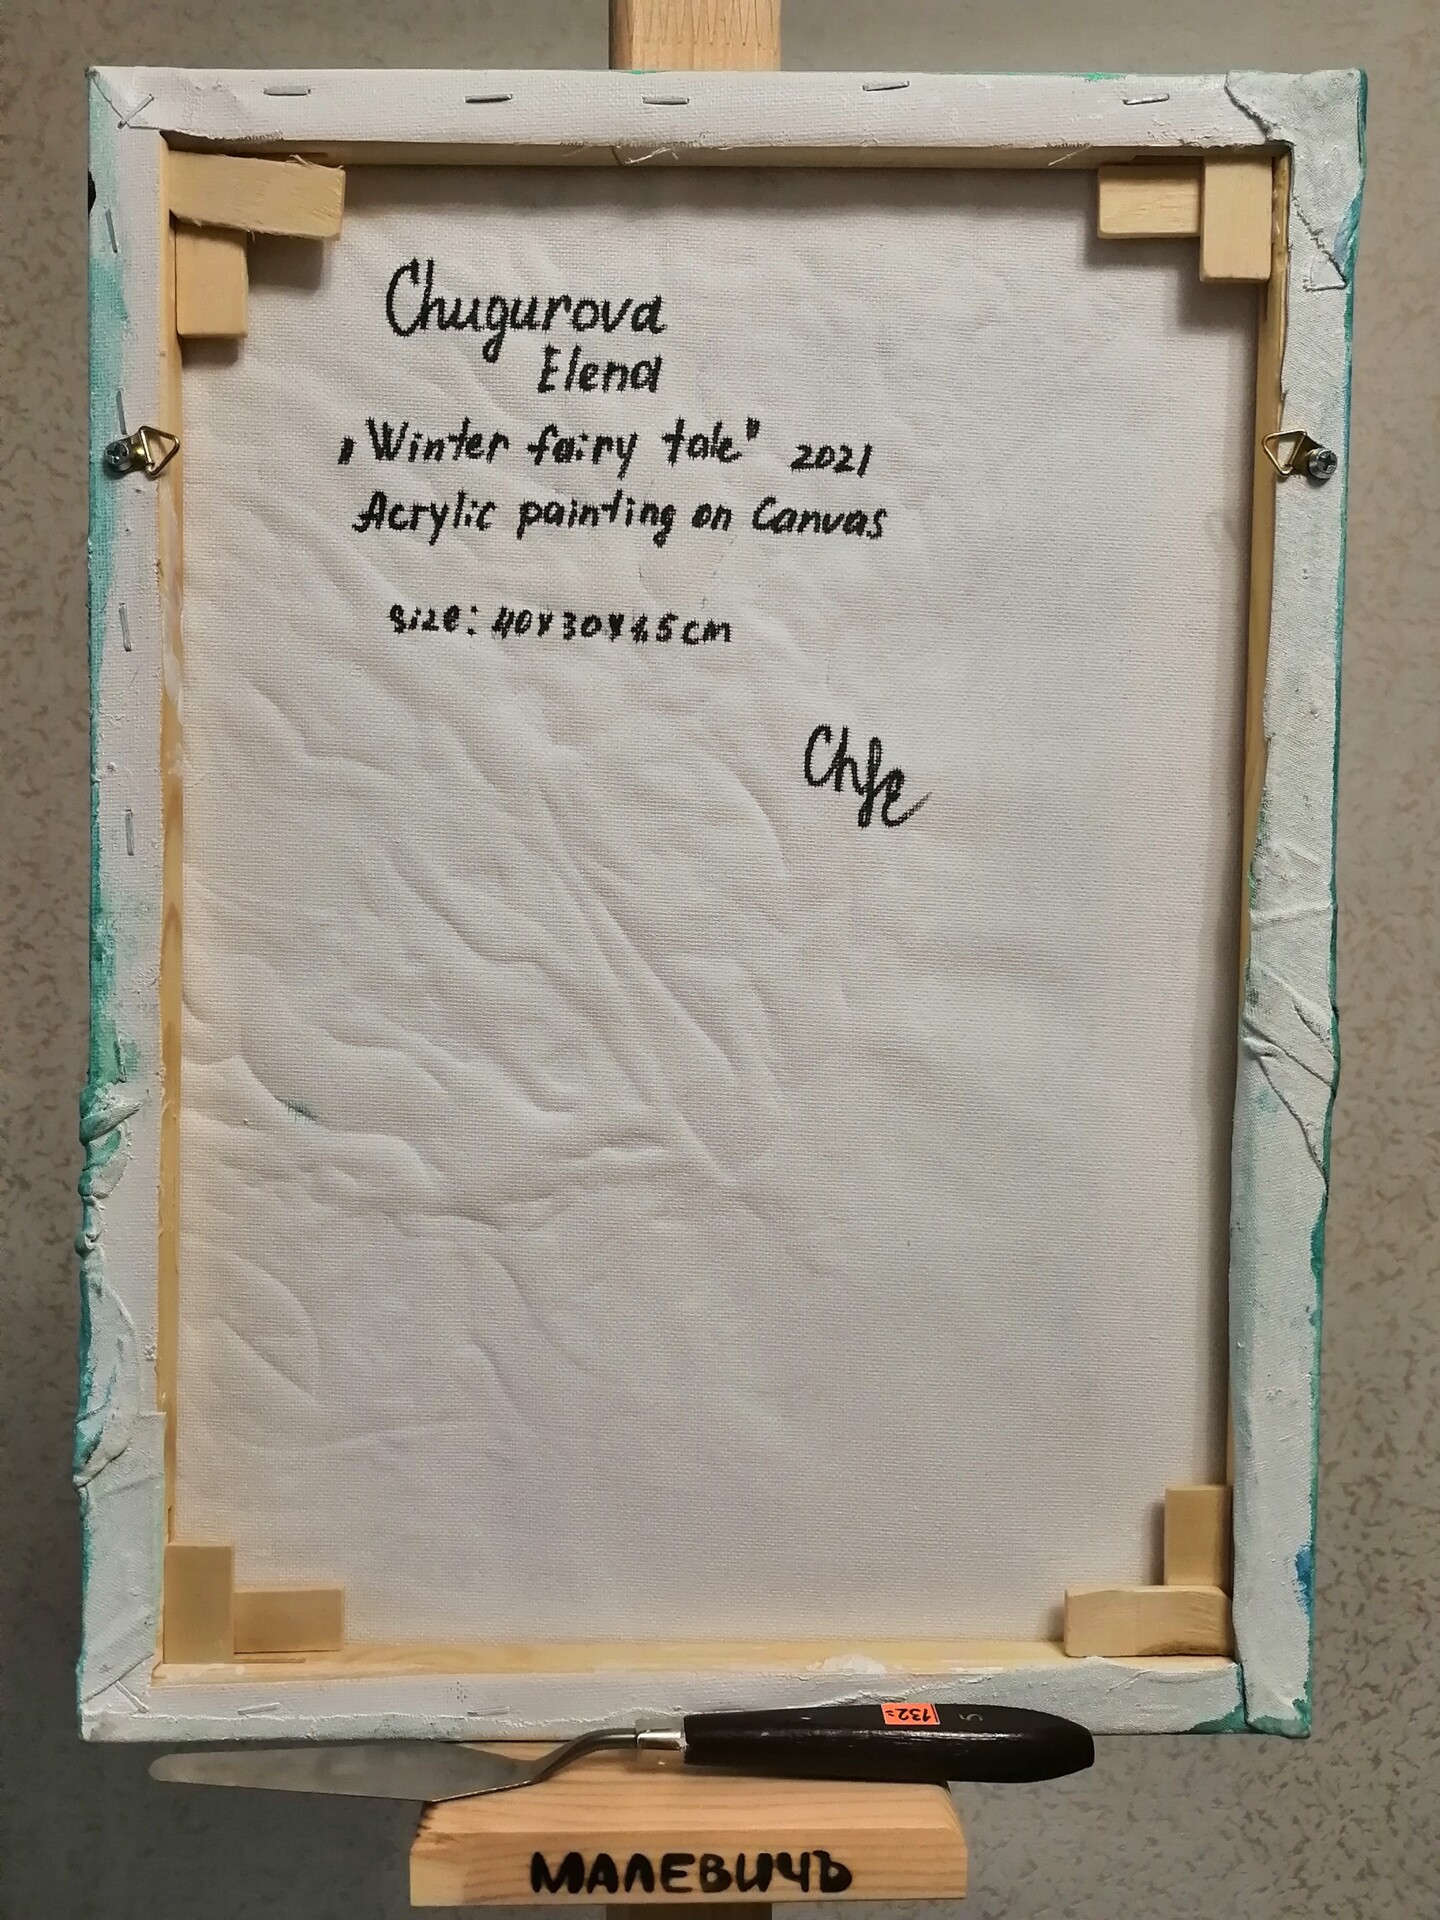 Chugurova
Elena
„Winter fairy tale" 2021
Acrylic painting on Canvas
size: 40x30x1,5 cm
132=
5
МАЛЕВИЧЪ